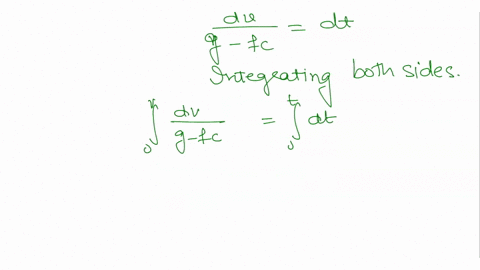 dv/g - fc = dt
Integrating both sides.
∫₀ᵛ dv/g-fc = ∫₀ᵗ dt